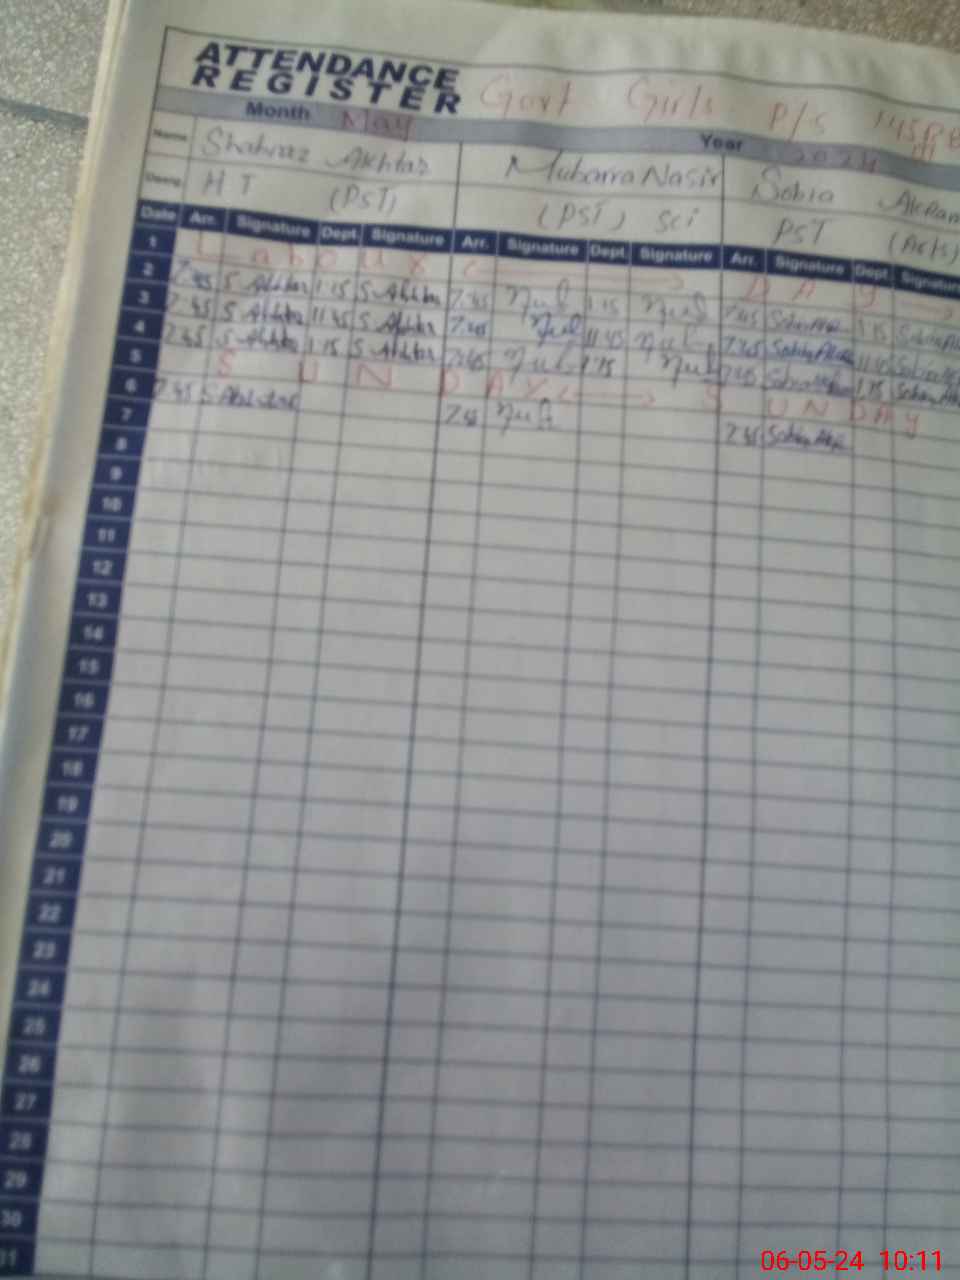 ATTENDANCE
REGISTER
Govt Girls P/S
Month May Year 2024
Name Shahnaz Akhtar Mubarra Nasir Sobia Akram
Desig. H T (PST) (PST) Sci PST (Arts)
Date Arr. Signature Dept. Signature Arr. Signature Dept. Signature Arr. Signature Dept. Signature
1 Labour DAY
2 7.45 S Akhtar 1.15 S Akhtar 7.45 1.15 7.45 1.15
3 7.45 S Akhtar 11.45 S Akhtar 7.45 11.45 7.45 11.45
4 7.45 S Akhtar 1.15 S Akhtar 7.45 1.15 7.45 1.15
5 SUNDAY SUNDAY
6 7.45 S Akhtar 7.45 7.45
7
8
9
10
11
12
13
14
15
16
17
18
19
20
21
22
23
24
25
26
27
28
29
30
31
06-05-24 10:11